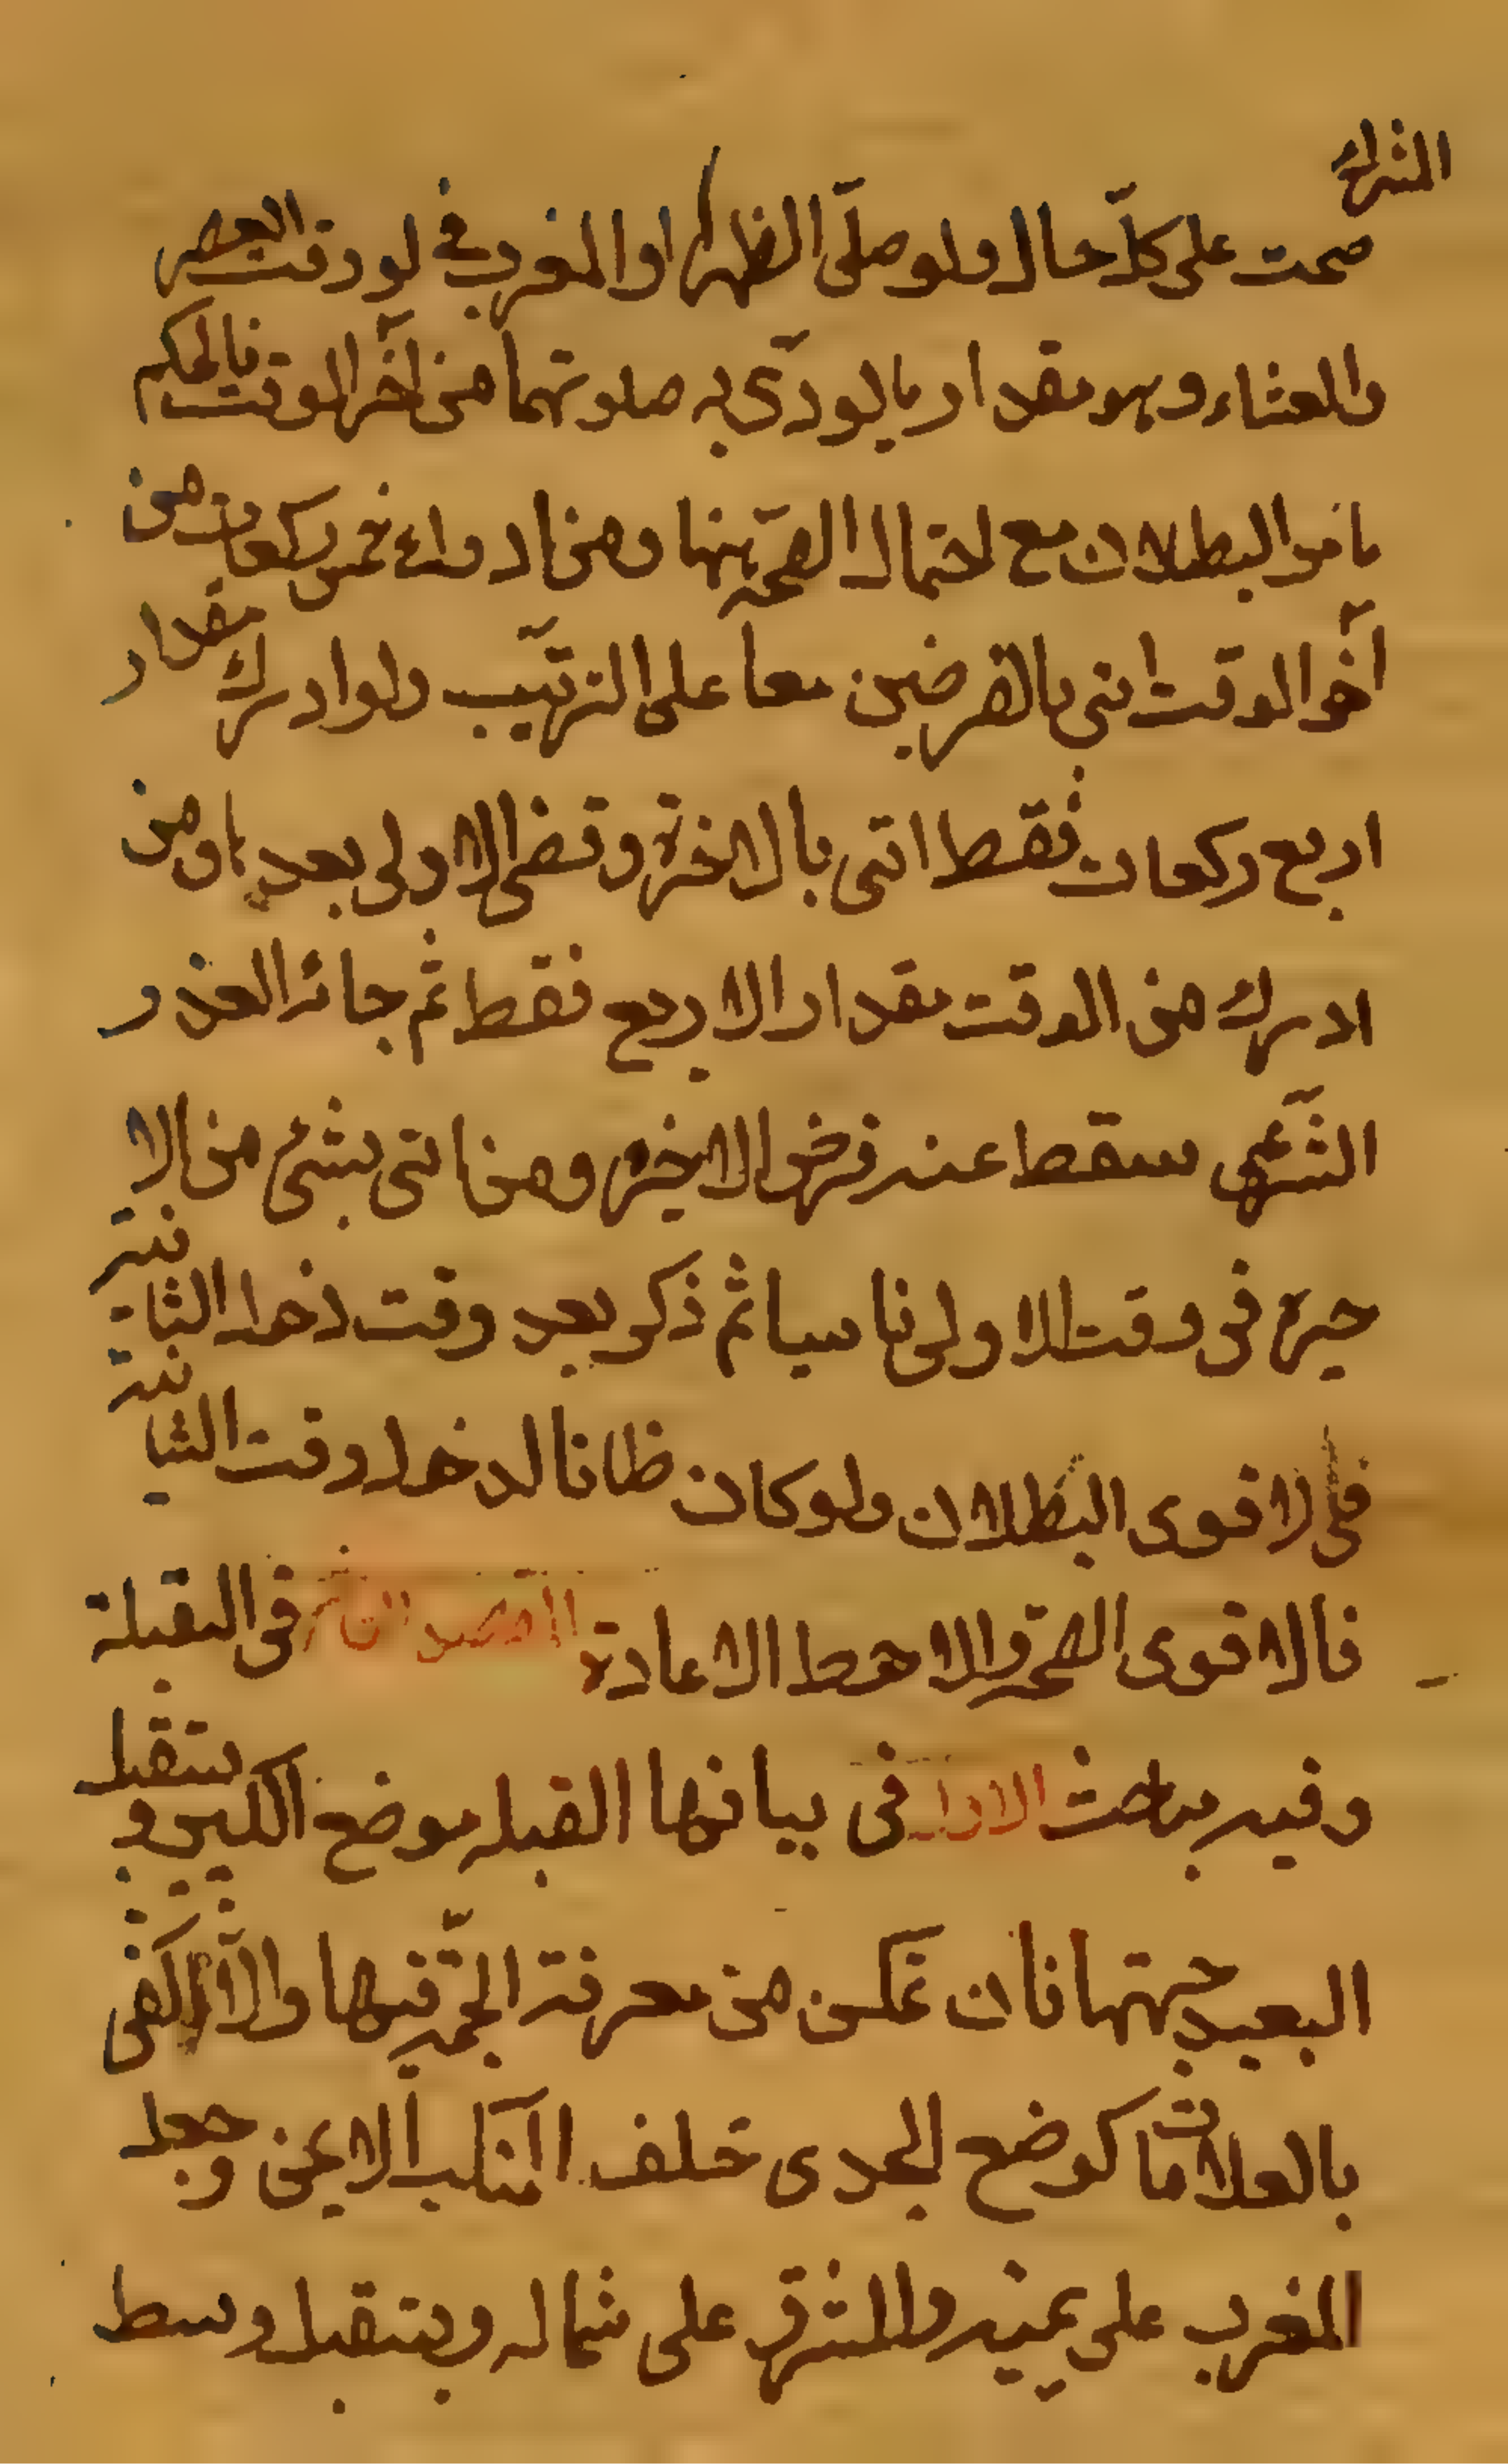 صحت على كلّ حال ولو صلّى الظهر او المغرب فى لو وقت العصر
والعشاء وهو مقدار ما يودّى به صلوتهما من آخر الوقت فالحكم
البطلان مع احتمال الصحّة بنها ومن ادرك خمس ركعات من
آخر الوقت اتى بالفرضين معا على الترتيب ولو ادرك مقدار
اربع ركعات فقط اتى بالاخرة وقضى الاولى بعدها ومن
ادرك من الوقت مقدار الاربع فقط ثم جائز العذر
الشّرعى سقط عنه فرض الاخيرة ومن اتى بشئ من الا
خيرة فى وقت الاولى ناسيا ثم ذكر بعد وقت دخل الثانية
فلى لاقوى البطلان ولو كان ظانا لدخل وقت الثانية
فالاقوى الصحّة والاحوط الاعادة المقصد الثا فى القبلة
وفيه مباحث الاول فى بيانها القبله موضع الكعبين ويستقبل
البعيد جهتها فان تمكن من معرفة الجهّة فيها والّا اكتفى
بالعلامات كوضع الجدى خلف المنكب الايمن وجعل
المغرب على يمينه والمشرق على شماله ويستقبل وسط